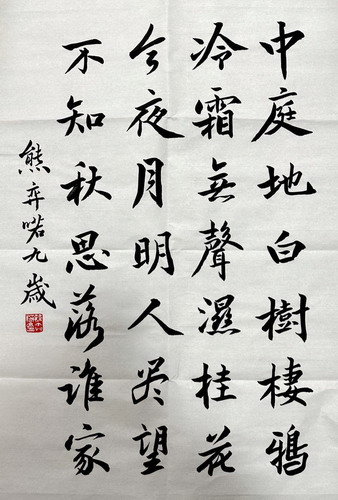 中庭地白樹棲鴉
冷霜無聲濕桂花
今夜月明人尽望
不知秋思落誰家
熊弈喏九歲